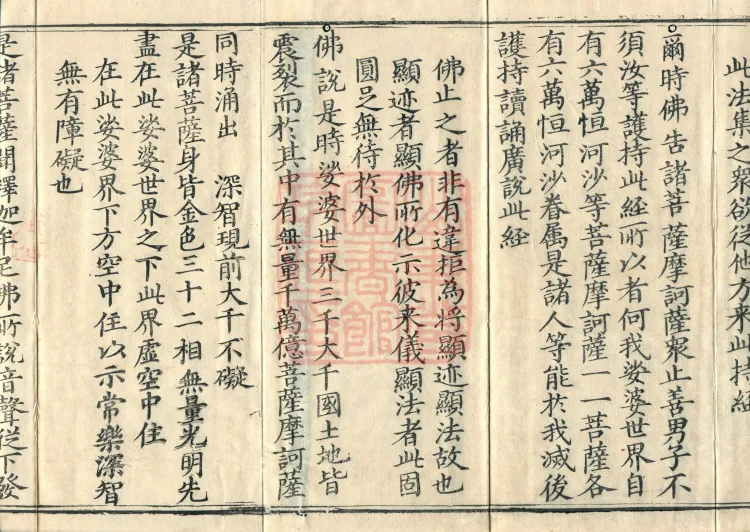 此法集之眾欲從他方来此持経
爾時佛告諸菩薩摩訶薩眾止善男子不
須汝等護持此経所以者何我娑婆世界自
有六萬恒河沙等菩薩摩訶薩一一菩薩各
有六萬恒河沙眷屬是諸人等能於我滅後
護持讀誦廣說此経
佛止之者非有違拒為将顯迹顯法故也
顯迹者顯佛所化示彼来儀顯法者此固
圓足無待於外
佛說是時娑婆世界三千大千國土地皆
震裂而於其中有無量千萬億菩薩摩訶薩
同時涌出 深智現前大千不礙
是諸菩薩身皆金色三十二相無量光明先
盡在此娑婆世界之下此界虛空中住
在此娑婆界下方空中住以示常樂深智
無有障礙也
是諸菩薩聞釋迦牟尼佛所說音聲從下發